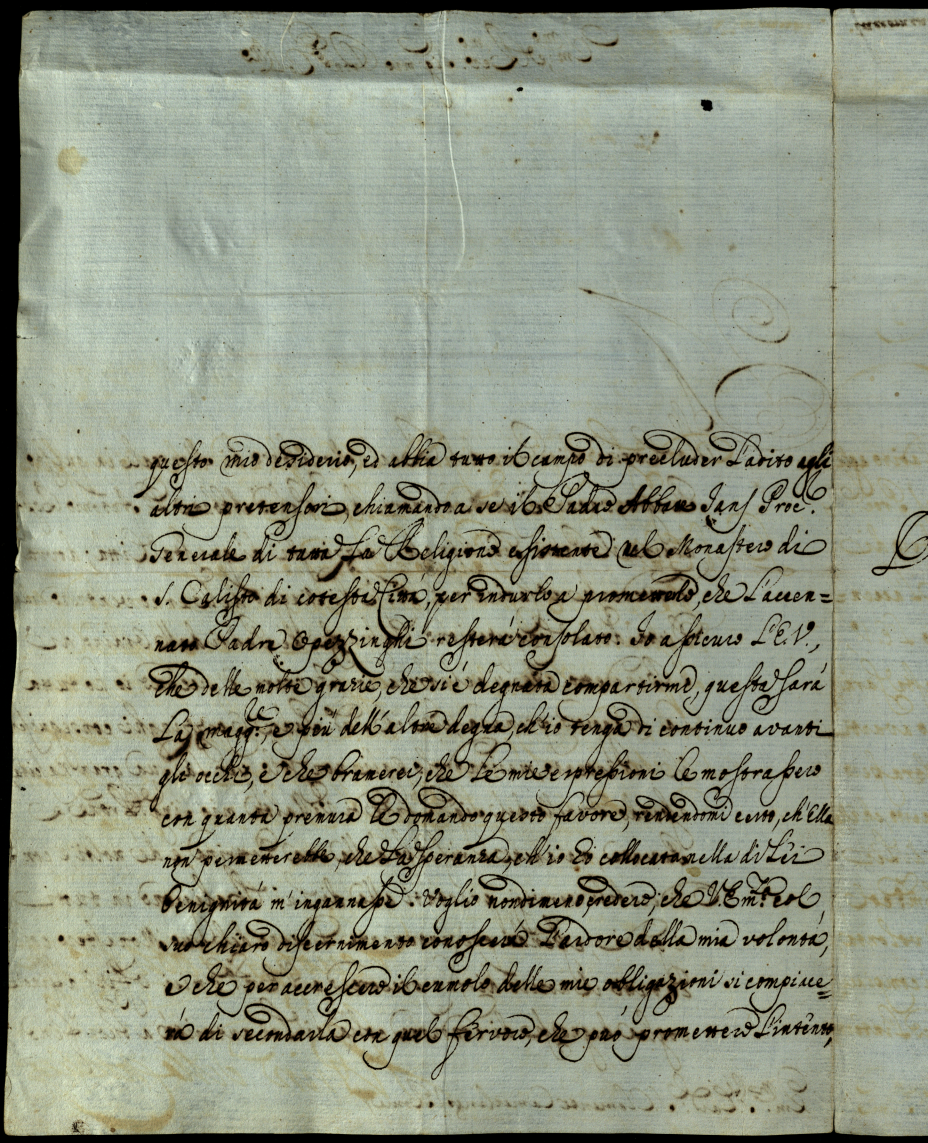 questo mio desiderio, ed abbia tutto il campo di precluder l'adito agli
altri pretensori, chiamando a se il Padre Abbate Jans Proc.re
Generale di tutta la Religione esistente nel Monastero di
S. Calisto di cotesta Città, per indurlo a prometterle, che l'accen=
nato Padre Opezzinghi resterà consolato. Io assicuro l'E. V.,
che delle molte grazie, che si è degnata compartirmi, questa sarà
la magg.re, e più dell'altre degna, ch'io tenga di continuo avanti
gli occhi, e che bramerei, che le mie espressioni le mostrassero
con quanta premura le domando questo favore, rendendomi certo, ch'Ella
non permetterebbe, che la speranza, ch'io ho collocata nella di Lei
benignità m'ingannasse. Voglio nondimeno credere, che V. Em.za col
suo chiaro discernimento conoscerà l'ardore della mia volontà,
e che per accrescere il cumolo delle mie obligazioni si compiace=
rà di secondarla con quel fervore, che può promettere l'intento,